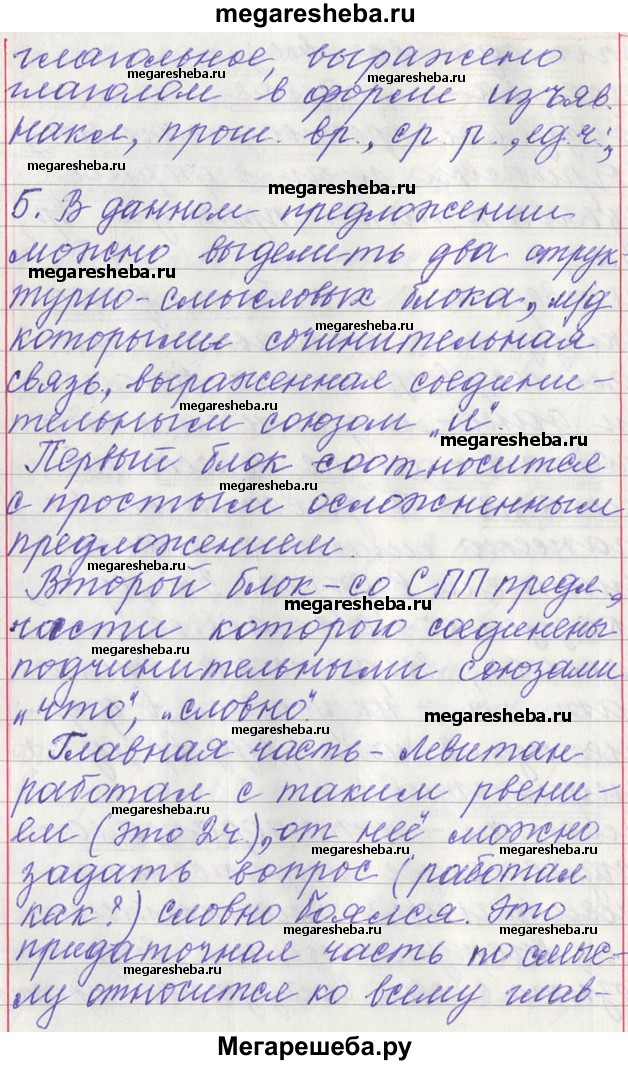 megaresheba.ru
глагольное, выражено
megaresheba.ru
megaresheba.ru
глаголом в форме изъяв.
megaresheba.ru
накл, прош. вр., ср. р., ед.ч.,
megaresheba.ru
megaresheba.ru
5. В данном предложении
можно выделить два струк-
megaresheba.ru
megaresheba.ru
турно-смысловых блока, м/д
megaresheba.ru
которыми сочинительная
связь, выраженная соедини-
megaresheba.ru
тельным союзом „и".
megaresheba.ru
Первый блок соотносится
megaresheba.ru
с простым осложненным
предложением.
megaresheba.ru
Второй блок-со СПП предл,
megaresheba.ru
части которого соединены
megaresheba.ru
подчинительными союзами
„что", „словно".
megaresheba.ru
Главная часть- Левитан
работал с таким рвени-
megaresheba.ru
ем (это 2ч.), от неё можно
megaresheba.ru
megaresheba.ru
задать вопрос (работал
как?) словно боялся. Это
megaresheba.ru
megaresheba.ru
придаточная часть по смыс-
megaresheba.ru
лу относится ко всему глав-
Мегарешеба.ру